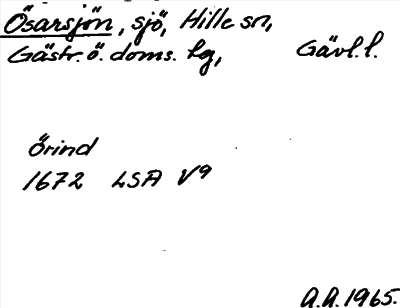 Ösarsjön, sjö, Hille sn,
Gästr. ö. doms. tg, Gävl. l.
örind
1672 LSA V9
A.A. 1965.